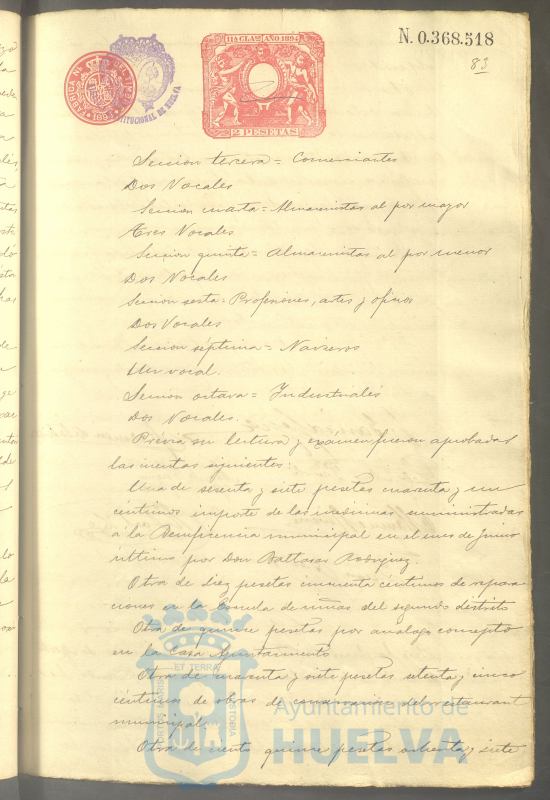 11ª CLASE AÑO 1894
N. 0.368.518
83
2 PESETAS
Seccion tercera = Comerciantes
Dos Vocales
Seccion cuarta = Almacenistas al por mayor
Tres Vocales
Seccion quinta = Almacenistas al por menor
Dos Vocales
Seccion sexta = Profesiones, artes y oficios
Dos Vocales
Seccion séptima = Navieros
Un vocal.
Seccion octava = Industriales
Dos Vocales.
Previa su lectura y examen fueron aprobadas
las cuentas siguientes:
Una de sesenta y siete pesetas cuarenta y un
centimos importe de las medicinas suministradas
a la Beneficencia municipal en el mes de Junio
último por Don Baltasar Rodriguez.
Otra de diez pesetas cincuenta centimos de repara-
ciones en la Escuela de niñas del segundo distrito
Otra de quince pesetas por analogo concepto
en la Casa Ayuntamiento
Otra de cuarenta y siete pesetas setenta y cinco
centimos de obras de del restaurant
municipal.
Otra de ciento quince pesetas ochenta y siete
ET TERRA
Ayuntamiento de
HUELVA